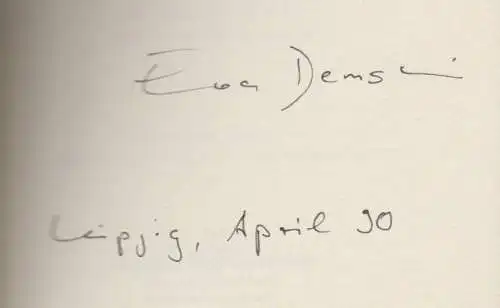 Eva Demski
Leipzig, April 90